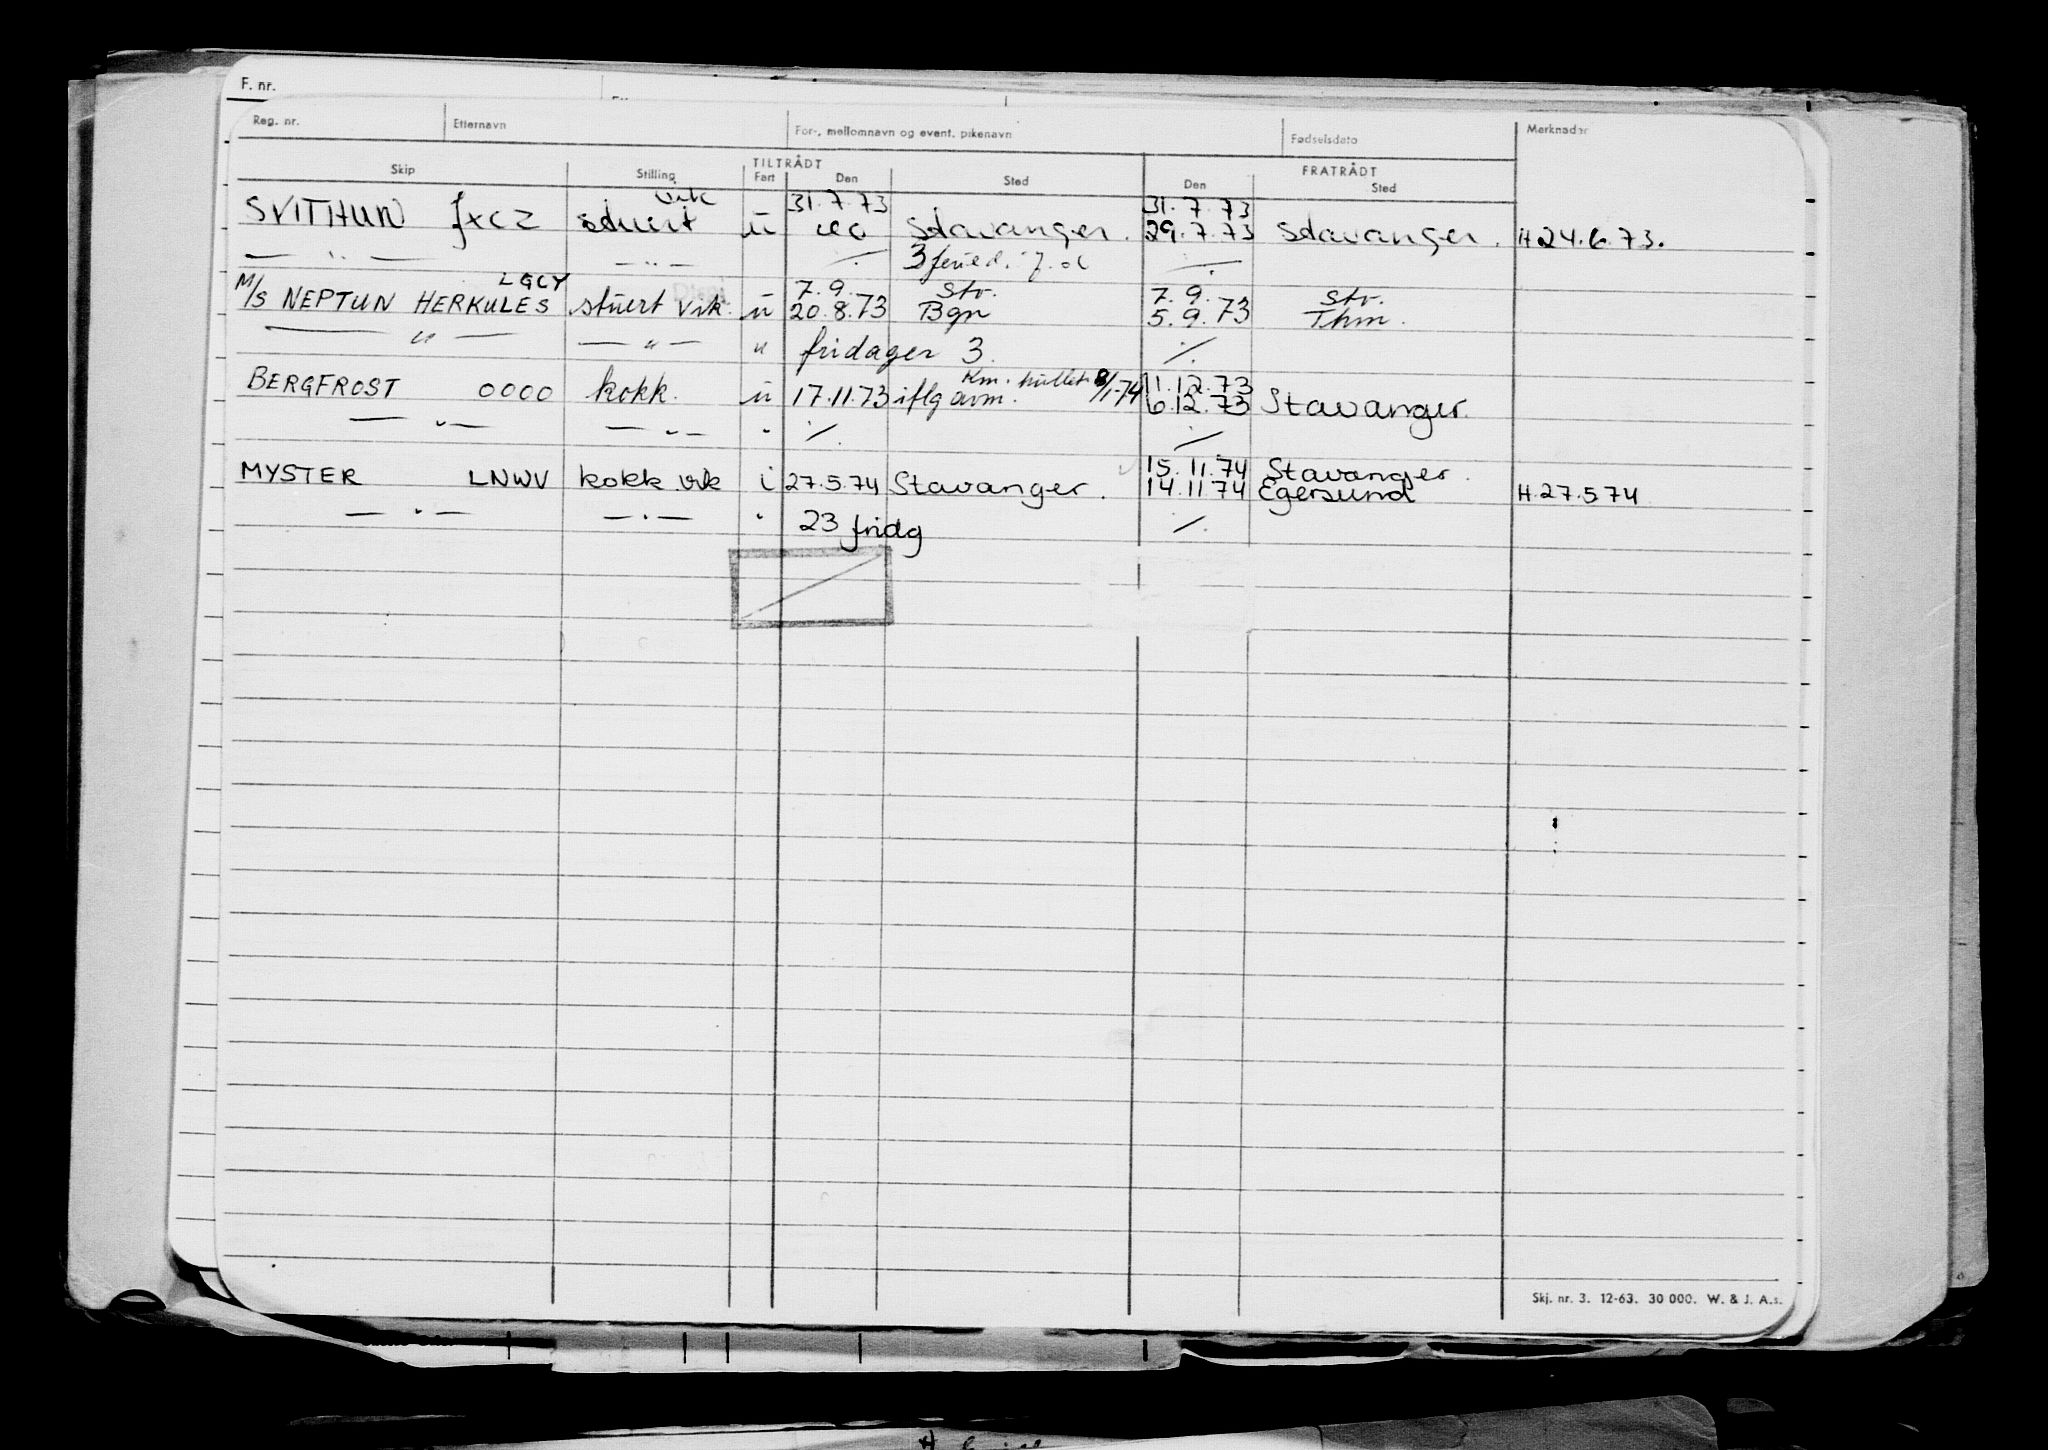 F. nr.
Reg. nr. Etternavn For-, mellomnavn og event. pikenavn Fødselsdato Merknader
TILTRÅDT FRATRÅDT
Skip Stilling Fart Den Sted Den Sted
vik 31.7.73 31.7.73
SVITHUN JXCZ stuert u Stavanger. 29.7.73 Stavanger. H 24.6.73.
— " — — " — ./. 3 ./.
LGCY 7.9. Stv. 7.9. Stv.
M/S NEPTUN HERKULES stuert vik. u 20.8.73 Bgn 5.9.73 Thm.
— " — — " — " fridager 3. ./.
Km. hullet 8/1-74 11.12.73
BERGFROST OOOO kokk. u 17.11.73 iflg avm. 6.12.73 Stavanger.
— " — — " — " ./. ./.
15.11.74 Stavanger.
MYSTER LNWV kokk vik i 27.5.74 Stavanger. 14.11.74 Egersund H.27.5.74
— " — — " — " 23 fridg ./.
Skj. nr. 3. 12-63. 30 000. W. & J. A.s.